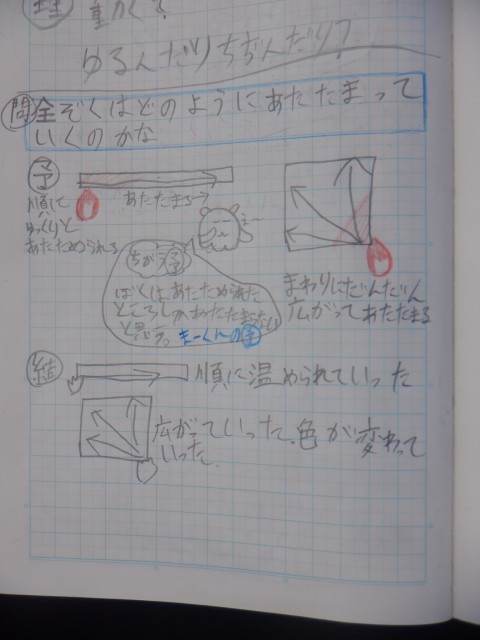 理 動かく?
ゆるんだりちぢんだり?
問 全ぞくはどのようにあたたまって
いくのかな
予
順に
ゆっくりと
あたためられる
あたたまる→
ちがう予
ぼくは、あたためられた
ところしかあたたまらない
と思う。まーくんの予
まわりにだんだん
広がってあたたまる
結
順に温められていった
広がっていった、色が変わって
いった